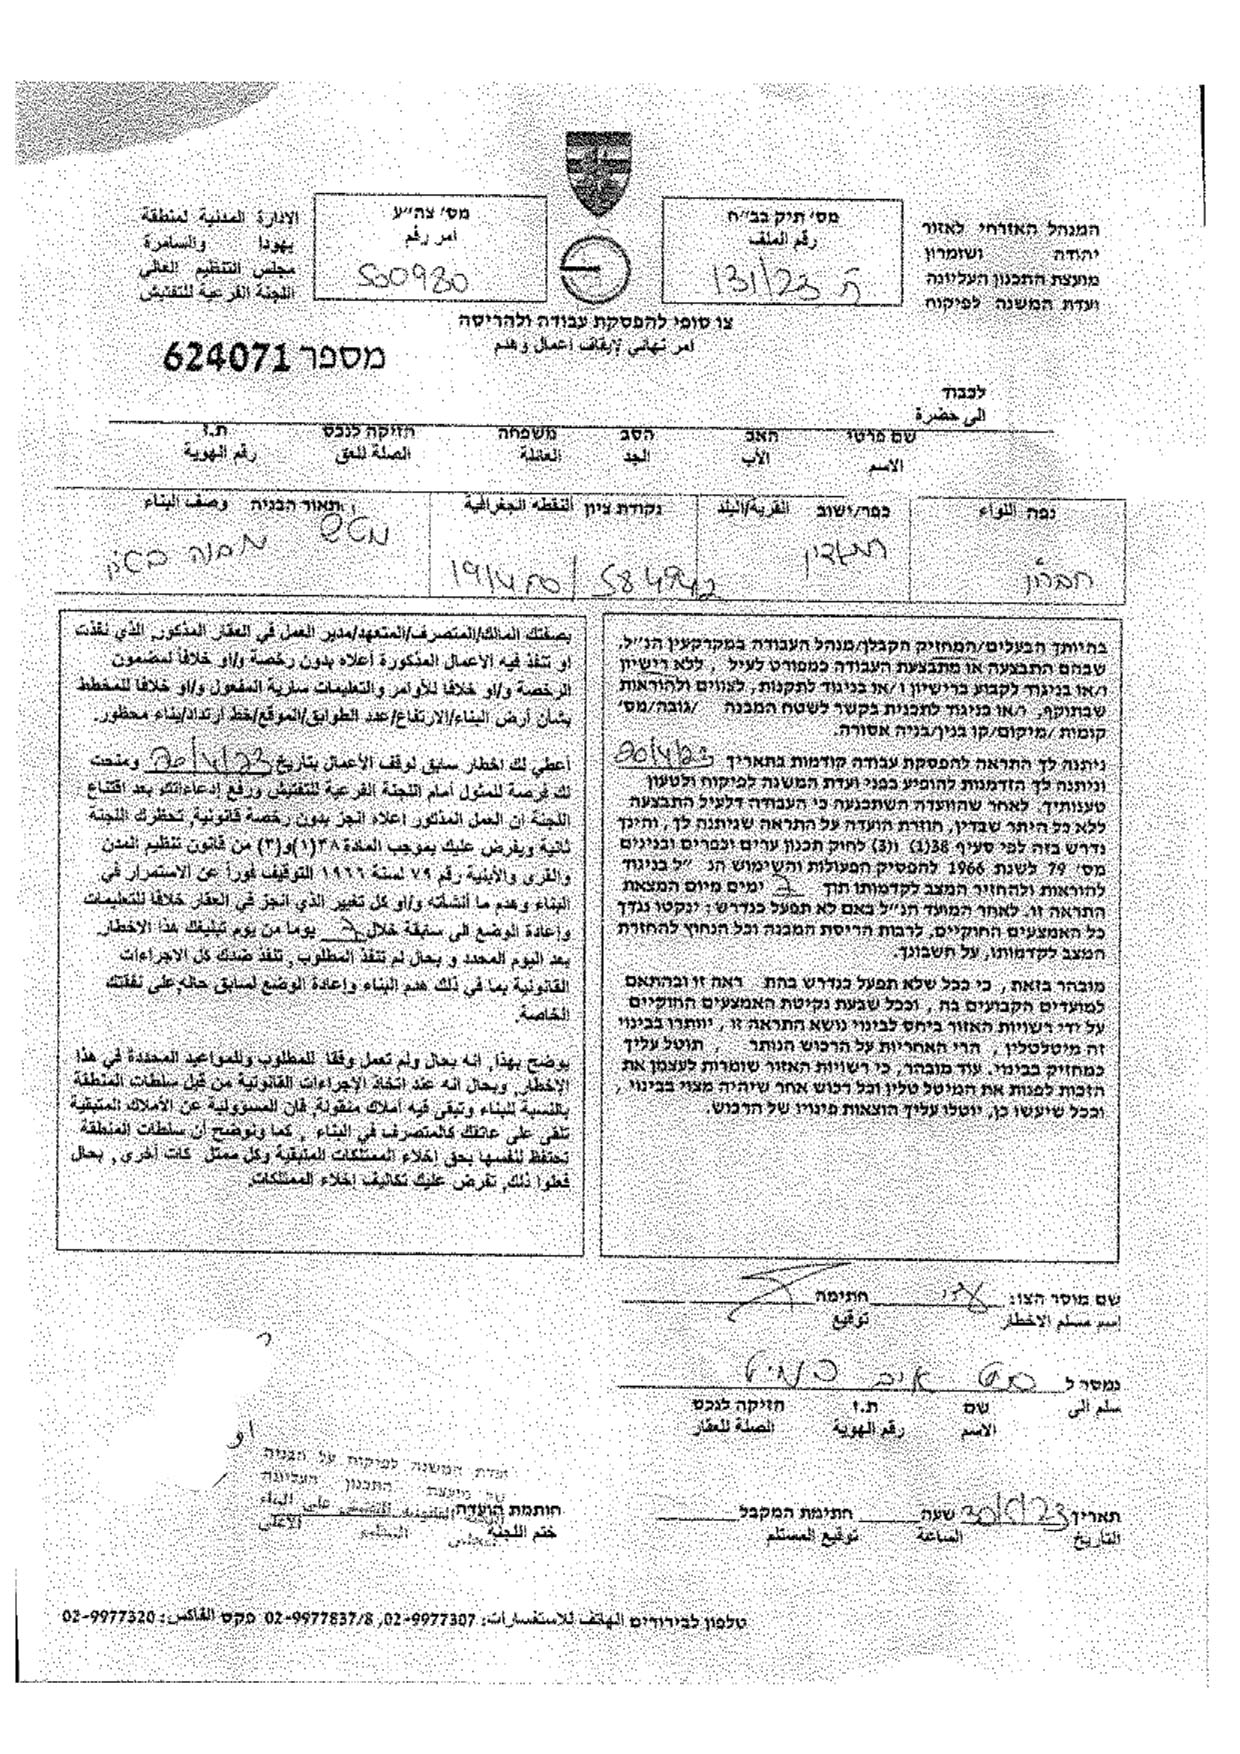 המנהל האזרחי לאזור
יהודה ושומרון
מועצת התכנון העליונה
ועדת המשנה לפיקוח
מס' תיק בב"ח
رقم الملف
ח 131/23
מס' צה"ע
أمر رقم
530930
الإدارة المدنية لمنطقة
يهودا والسامرة
مجلس التنظيم العالي
اللجنة الفرعية للتفتيش
צו סופי להפסקת עבודה ולהריסה
أمر نهائي لإيقاف أعمال وهدم
מספר 624071
לכבוד
الى حضرة
שם פרטי האב הסב משפחה הזיקה לנכס ת.ז
الاسم الأب الجد العائلة الصلة للعق رقم الهوية
נפה اللواء
חברון
כפר/ישוב القرية/البلد
נקודת ציון النقطه الجغرافية
584942
תאור הבניה وصف البناء
מבנה
בהיותך הבעלים/המחזיק הקבלן/מנהל העבודה במקרקעין הנ"ל,
שבהם התבצעה או מתבצעת העבודה כמפורט לעיל, ללא רישיון
ו/או בניגוד לקבוע ברישיון ו/או בניגוד לתקנות, לצווים ולהוראות
שבתוקף, ו/או בניגוד לתכנית בקשר לשטח המבנה /גובה/מס'
קומות /מיקום/קו בנין/בניה אסורה.
ניתנה לך התראה להפסקת עבודה קודמות בתאריך 20/4/23
וניתנה לך הזדמנות להופיע בפני ועדת המשנה לפיקוח ולטעון
טענותיך. לאחר שהוועדה השתכנעה כי העבודה דלעיל התבצעה
ללא כל היתר שבדין, חוזרת הועדה על התראה שניתנה לך, והינך
נדרש בזה לפי סעיף 38(1) ו(3) לחוק תכנון ערים וכפרים ובנינים
מס' 79 לשנת 1966 להפסיק הפעולות והשימוש הנ"ל בניגוד
להוראות ולהחזיר המצב לקדמותו תוך 7 ימים מיום המצאת
התראה זו. לאחר המועד הנ"ל באם לא תפעל כנדרש; ינקטו נגדך
כל האמצעים החוקיים, לרבות הריסת המבנה וכל הנחוץ להחזרת
המצב לקדמותו, על חשבונך.
מובהר בזאת, כי ככל שלא תפעל כנדרש בהת ראה זו ובהתאם
למועדים הקבועים בה, וככל שבעת נקיטת האמצעים החוקיים
על ידי רשויות האזור ביחס לבינוי נושא התראה זו, יוותרו בבינוי
זה מיטלטלין, הרי האחריות על הרכוש הנותר, תוטל עליך
כמחזיק בבינוי. עוד מובהר, כי רשויות האזור שומרות לעצמן את
הזכות לפנות את המיטל טלין וכל רכוש אחר שיהיה מצוי בבינוי,
וככל שיעשו כן, יוטלו עליך הוצאות פינויו של הרכוש.
بصفتك المالك/المتصرف/المتعهد/مدير العمل في العقار المذكور, الذي نفذت
او تنفذ فيه الأعمال المذكورة أعلاه بدون رخصة و/او خلافا لمضمون
الرخصة و/او خلافا للأوامر والتعليمات سارية المفعول و/او خلافا للمخطط
بشأن أرض البناء/الارتفاع/عدد الطوابق/الموقع/خط ارتداد/بناء محظور.
أعطي لك اخطار سابق لوقف الأعمال بتاريخ 20/4/23 ومنحت
لك فرصة للمثول أمام اللجنة الفرعية للتفتيش ورفع إدعاءاتك بعد اقتناع
اللجنة ان العمل المذكور اعلاه انجز بدون رخصة قانونية, تحظرك اللجنة
ثانية ويفرض عليك بموجب المادة ٣٨(١)و(٣) من قانون تنظيم المدن
والقرى والأبنية رقم ٧٩ لسنة ١٩٦٦ التوقيف فوراً عن الاستمرار في
البناء وهدم ما أنشأته و/او كل تغيير الذي انجز في العقار خلافا للتعليمات
وإعادة الوضع الى سابقة خلال 7 يوما من يوم تبليغك هذا الاخطار.
بعد اليوم المحدد و بحال لم تنفذ المطلوب, تنفذ ضدك كل الاجراءات
القانونية بما في ذلك هدم البناء وإعادة الوضع لسابق حاله, على نفقتك
الخاصة.
يوضح بهذا, انه بحال ولم تعمل وفقا للمطلوب وللمواعيد المحددة في هذا
الإخطار, وبحال انه عند اتخاذ الإجراءات القانونية من قبل سلطات المنطقة
بالنسبة للبناء وتبقى فيه أملاك منقولة, فان المسؤولية عن الاملاك المتبقية
تلقى على عاتقك كالمتصرف في البناء, كما ونوضح أن سلطات المنطقة
تحتفظ لنفسها بحق إخلاء الممتلكات المتبقية وكل ممتل كات أخرى, بحال
فعلوا ذلك, تفرض عليك تكاليف إخلاء الممتلكات.
שם מוסר הצו: חתימה
اسم مسلم الاخطار توقيع
נמסר ל
سلم الى
שם ת.ז הזיקה לנכס
الاسم رقم الهوية الصلة للعقار
ועדת המשנה לפיקוח על הבניה
של מועצת התכנון העליונה
חותמת הועדה
ختم اللجنة
תאריך 30/5/23 שעה חתימת המקבל
التاريخ الساعة توقيع المستلم
טלפון לבירורים الهاتف للاستفسارات: 02-9977307, 02-9977837/8 פקס الفاكس: 02-9977320